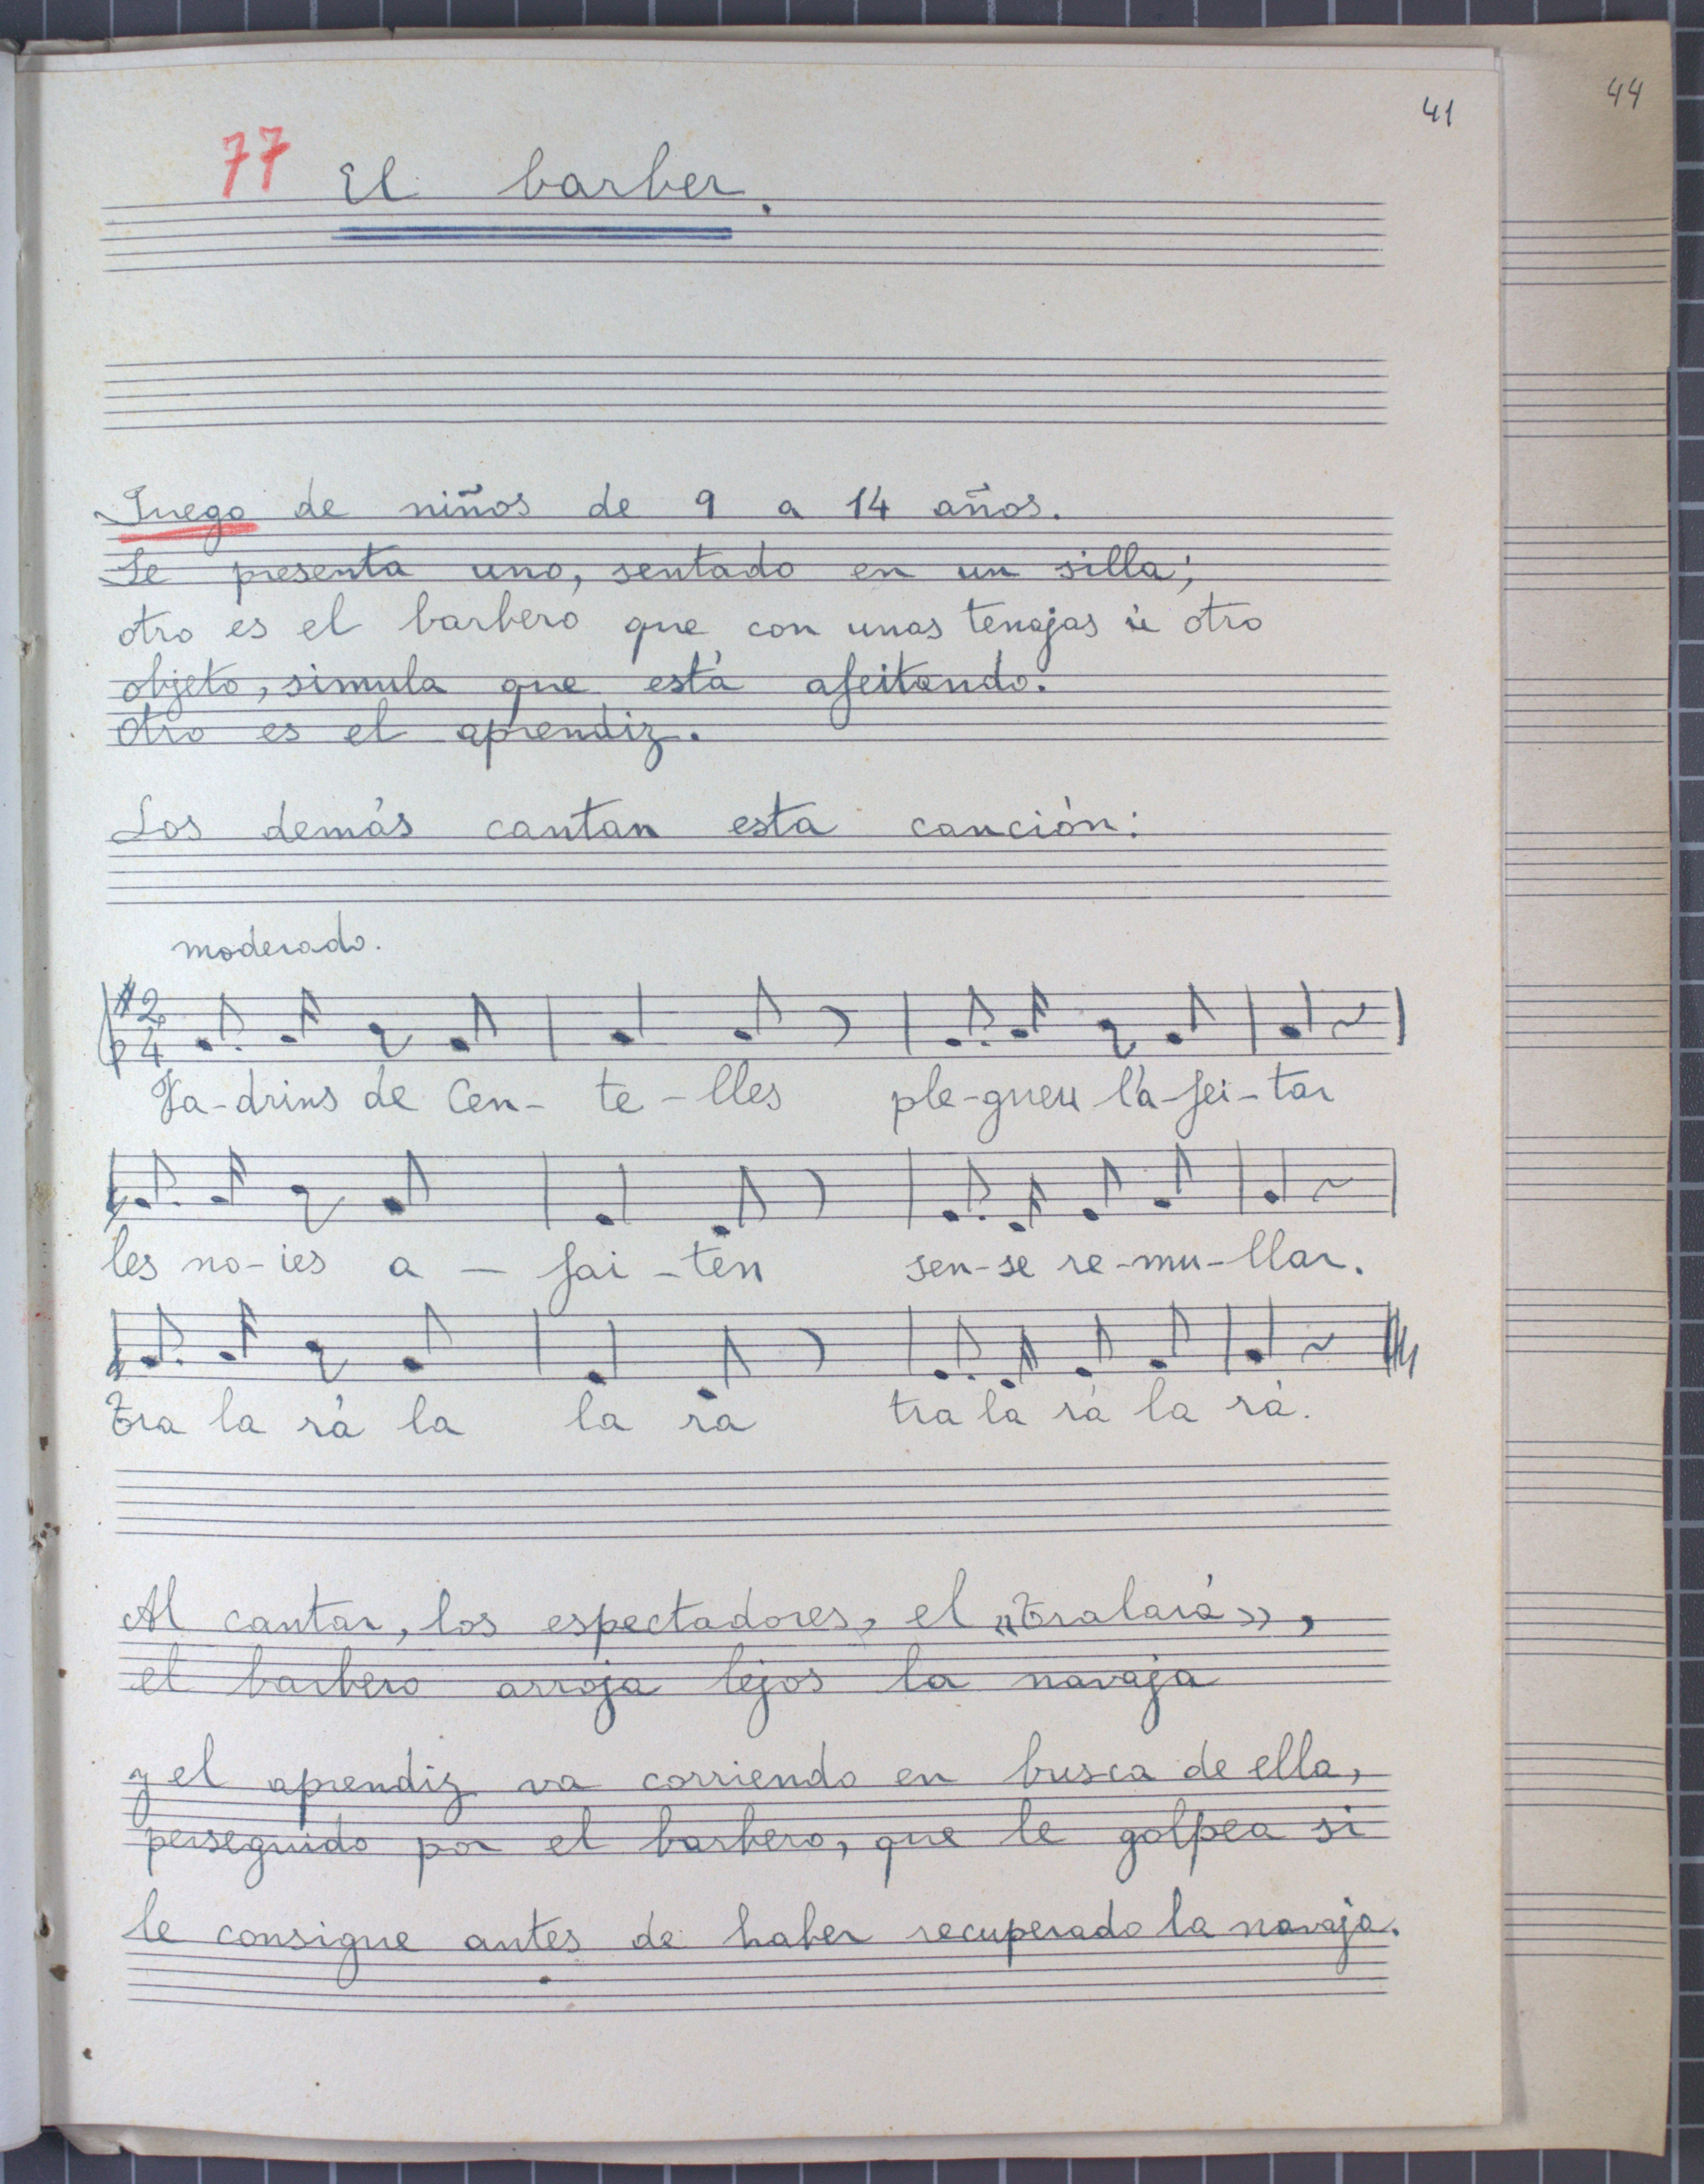 44
41
77 El barber.
Juego de niños de 9 a 14 años.
Se presenta uno, sentado en un silla;
otro es el barbero que con unas tenajas ú otro
objeto, simula que está afeitando.
Otro es el aprendiz.
Los demás cantan esta canción:
moderado.
2
4
Fa-drins de Cen- te-lles ple-gueu l'a-fei-tar
les no-ies a - fai-ten sen-se re-mu-llar.
Tra la rá la la ra tra la rá la rá.
Al cantar, los espectadores, el «Tralará»,
el barbero arroja lejos la navaja
y el aprendiz va corriendo en busca de ella,
perseguido por el barbero, que le golpea si
le consigue antes de haber recuperado la navaja.